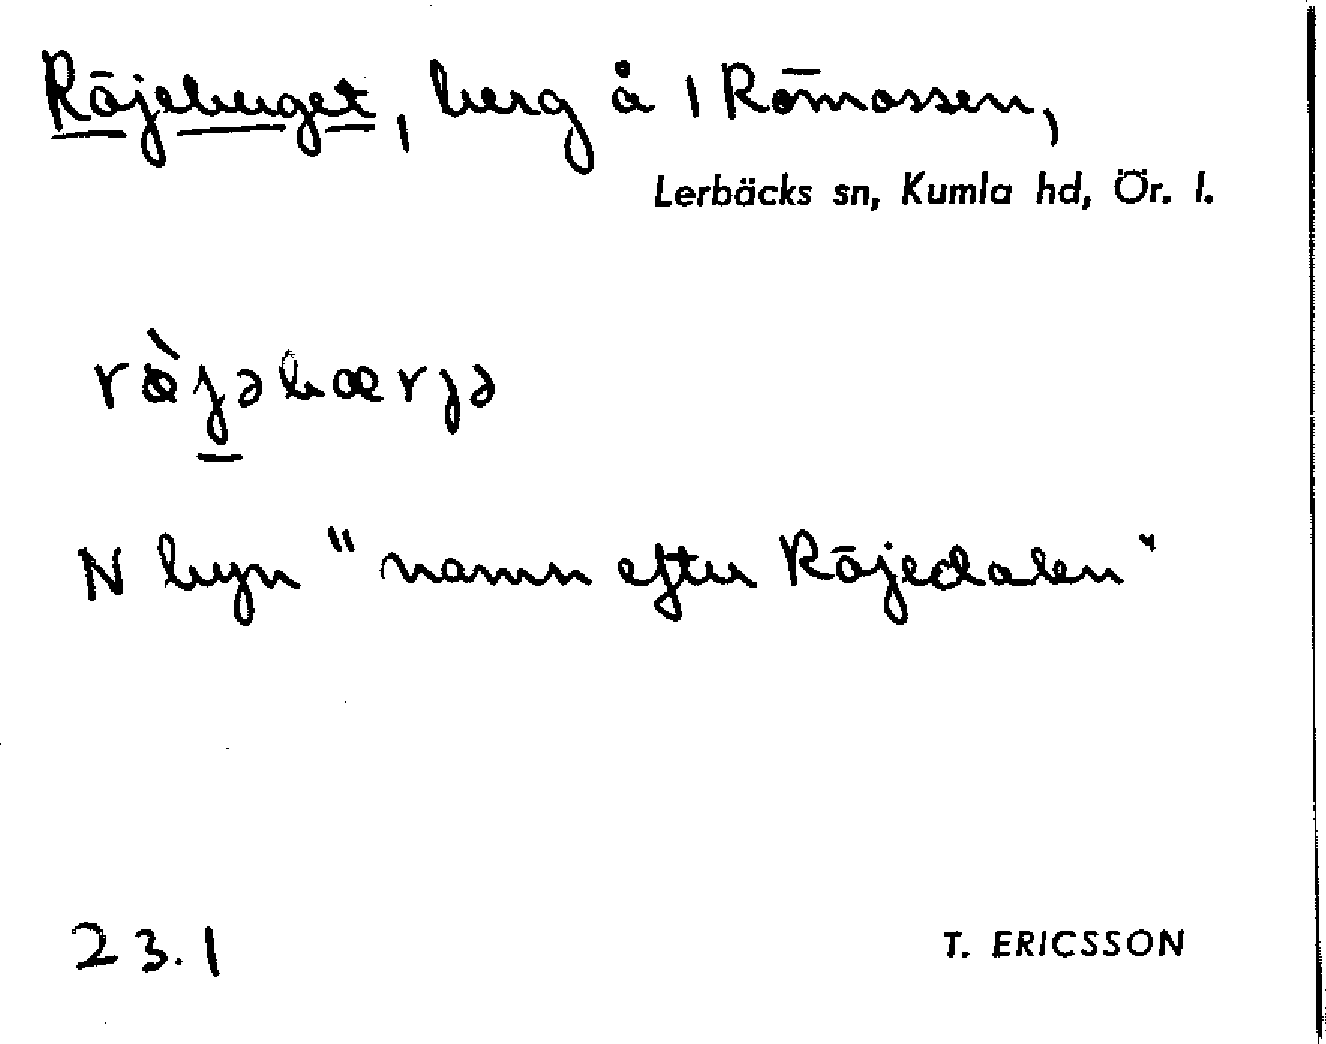 Röjeberget, berg å 1 Römossen,
Lerbäcks sn, Kumla hd, Ör. l.
rö̀jəbærjə
N byn "namn efter Röjedalen"
23.1
T. ERICSSON